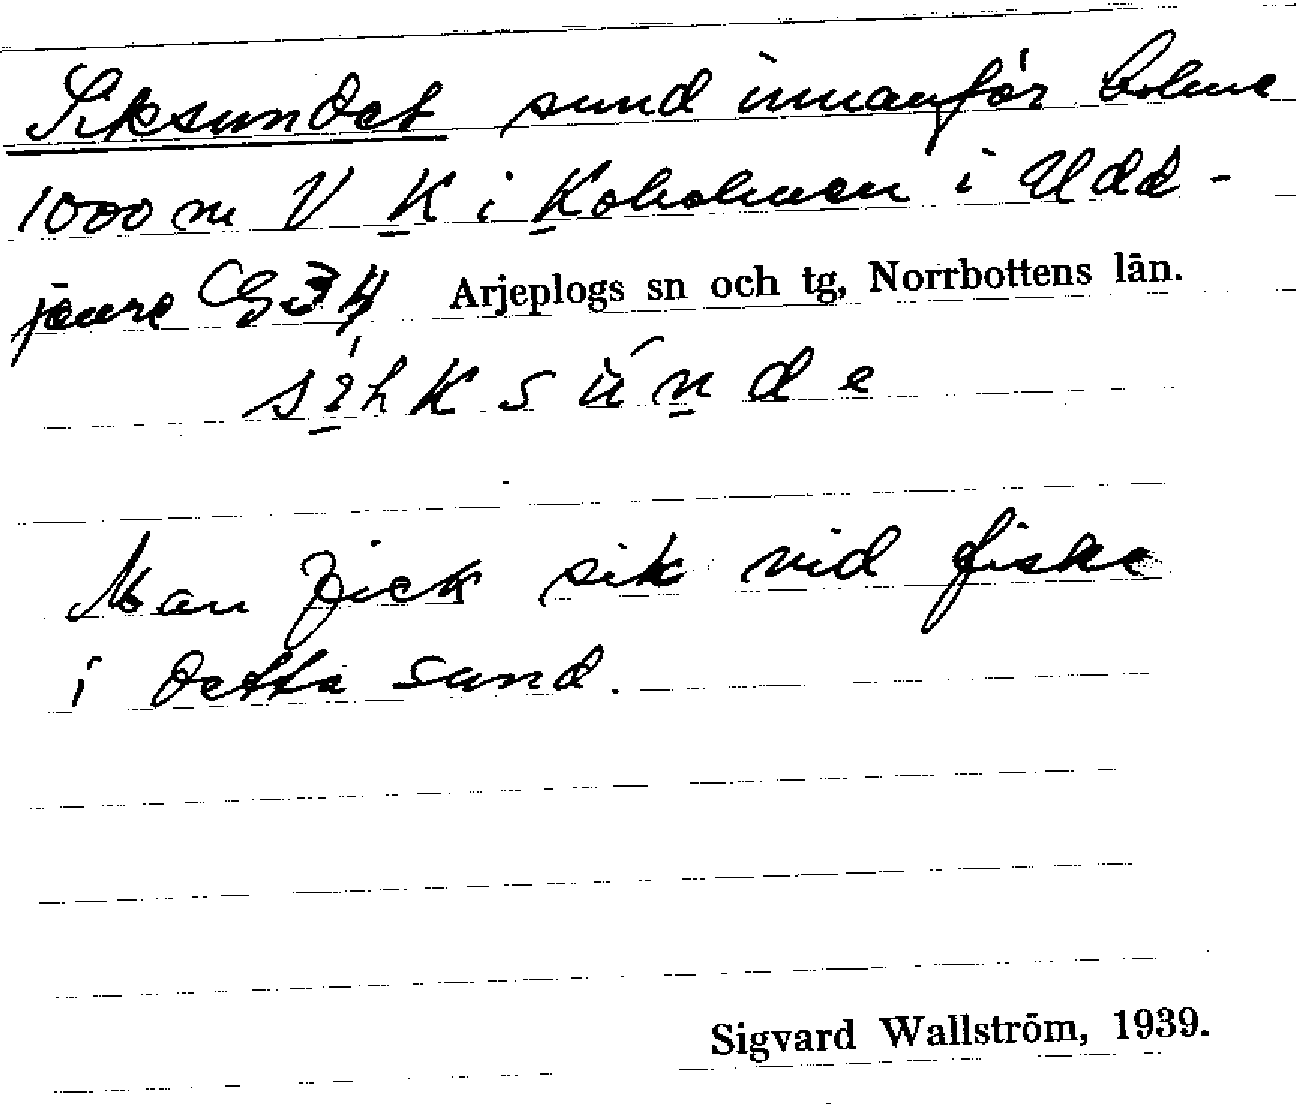 Siksundet sund innanför holme
1000 m V K i Koholmen i Udd-
jaure G34 Arjeplogs sn och tg, Norrbottens län.
sihksúnde
Man fick sik vid fiske
i detta sund.
Sigvard Wallström, 1939.